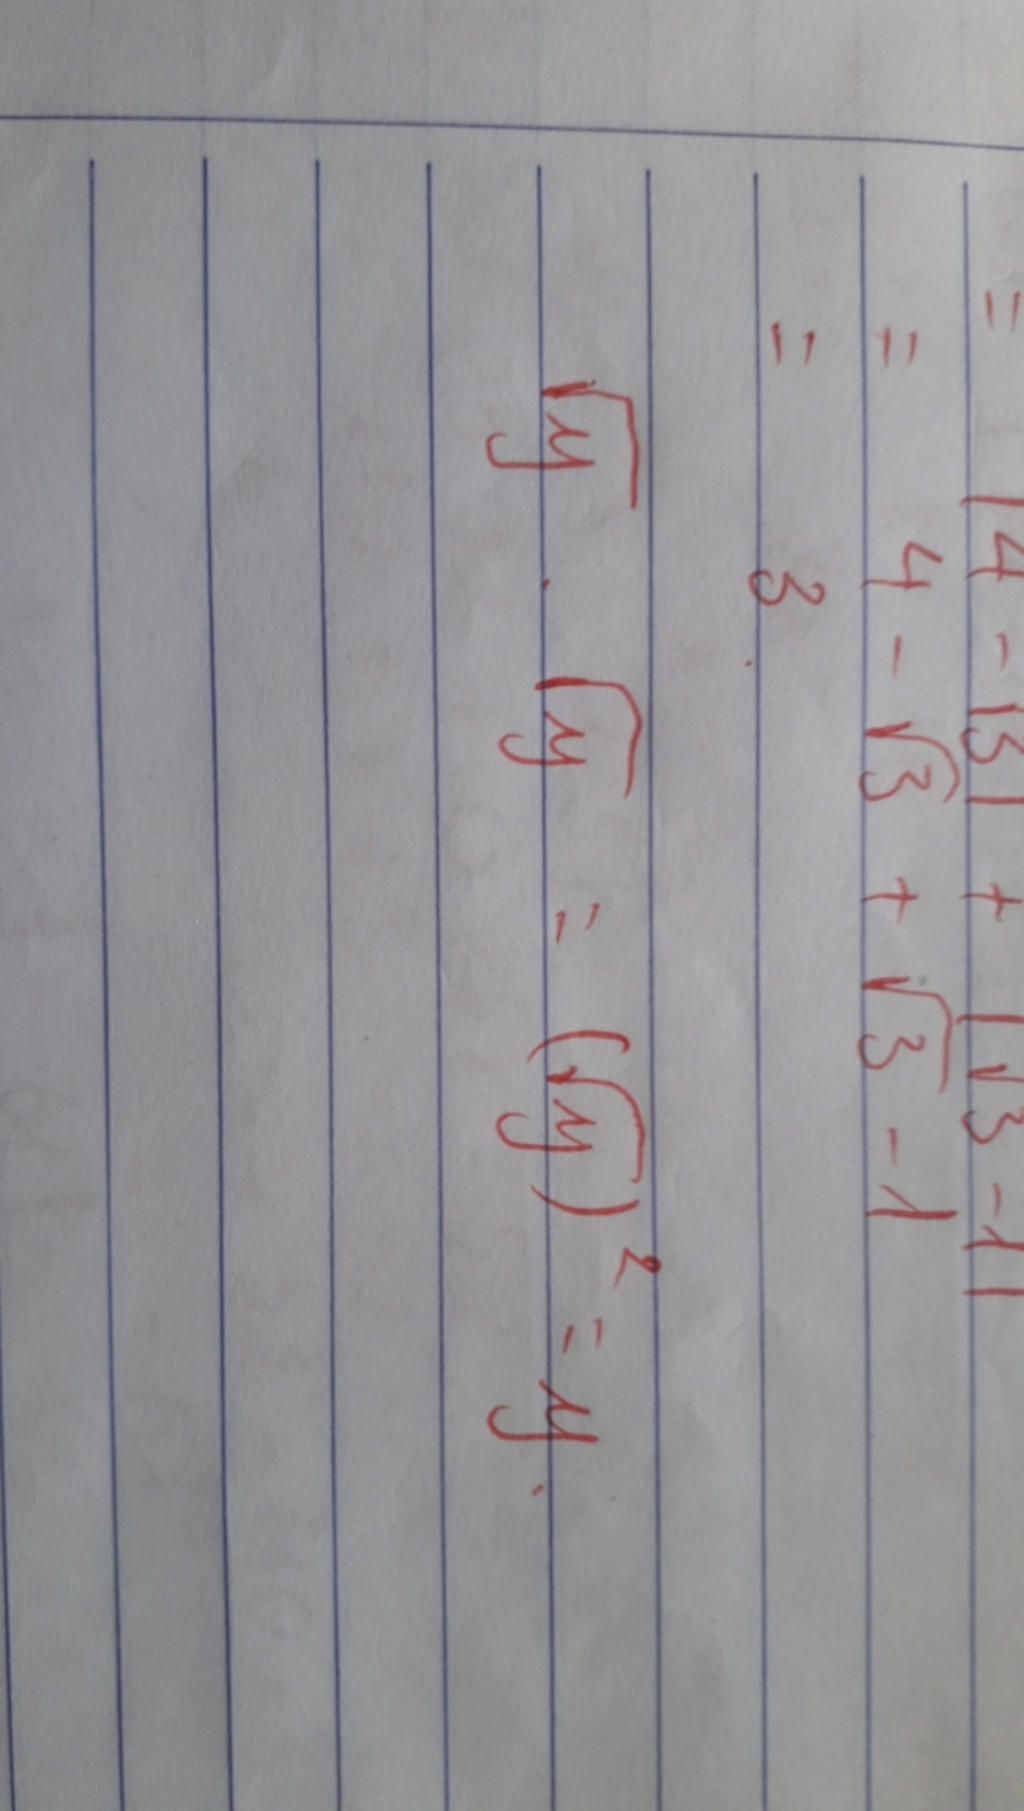 = |4 - √3| + |√3 - 1|
= 4 - √3 + √3 - 1
= 3.
√y . √y = (√y)² = y.